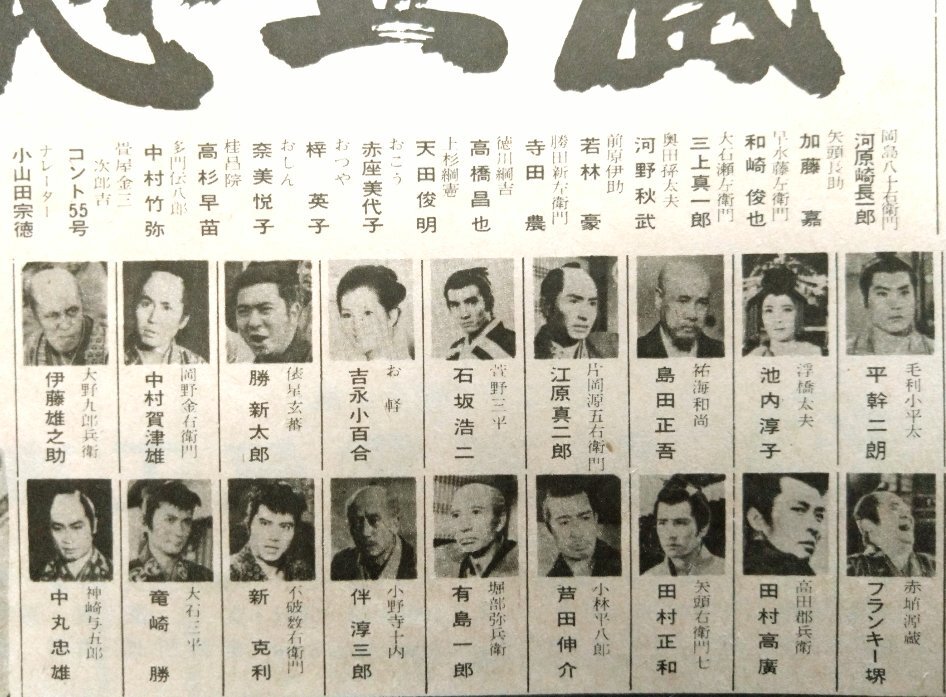 岡島八十右衛門
河原崎長一郎
矢頭長助
加藤 嘉
早水藤左衛門
和崎俊也
大石瀬左衛門
三上真一郎
奥田孫太夫
河野秋武
前原伊助
若林 豪
勝田新左衛門
寺田 農
徳川綱吉
高橋昌也
上杉綱憲
天田俊明
おこう
赤座美代子
おつや
梓 英子
おしん
奈美悦子
桂昌院
高杉早苗
多門伝八郎
中村竹弥
畳屋金三
次郎吉
コント55号
ナレーター
小山田宗徳
毛利小平太
平 幹二朗
浮橋太夫
池内淳子
祐海和尚
島田正吾
片岡源五右衛門
江原真二郎
萱野三平
石坂浩二
お軽
吉永小百合
俵星玄蕃
勝 新太郎
岡野金右衛門
中村賀津雄
大野九郎兵衛
伊藤雄之助
赤埴源蔵
フランキー堺
高田郡兵衛
田村高廣
矢頭右衛門七
田村正和
小林平八郎
芦田伸介
堀部弥兵衛
有島一郎
小野寺十内
伴 淳三郎
不破数右衛門
新 克利
大石三平
竜崎 勝
神崎与五郎
中丸忠雄